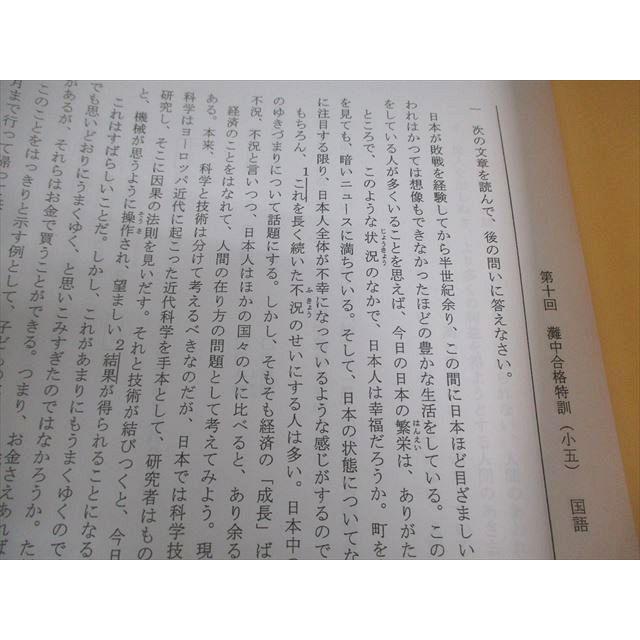 第十回　灘中合格特訓（小五）　国語
一　次の文章を読んで、後の問いに答えなさい。
日本が敗戦を経験してから半世紀余り、この間に日本ほど目ざましい
われはかつては想像もできなかったほどの豊かな生活をしている。この
をしている人が多くいることを思えば、今日の日本の繁栄は、ありがた
はんえい
ところで、このような状況のなかで、日本人は幸福だろうか。町を
じょうきょう
を見ても、暗いニュースに満ちている。そして、日本の状態についてな
に注目する限り、日本人全体が不幸になっているような感じがするので
もちろん、1これを長く続いた不況のせいにする人は多い。日本中の
ふきょう
のゆきづまりについて話題にする。しかし、そもそも経済の「成長」ば
不況、不況と言いつつ、日本人はほかの国々の人に比べると、あり余る
経済のことをはなれて、人間の在り方の問題として考えてみよう。現
ある。本来、科学と技術は分けて考えるべきなのだが、日本では科学技
科学はヨーロッパ近代に起こった近代科学を手本として、研究者はもの
研究し、そこに因果の法則を見いだす。それと技術が結びつくと、今日
と、機械が思うように操作され、望ましい2結果が得られることになる
そうさ
これはすばらしいことだ。しかし、これがあまりにもうまくゆくので
でも思いどおりにうまくゆく、と思いこみすぎたのではなかろうか。た
があるが、それらはお金で買うことができる。つまり、お金さえあれば
このことをはっきりと示す例として、子ども